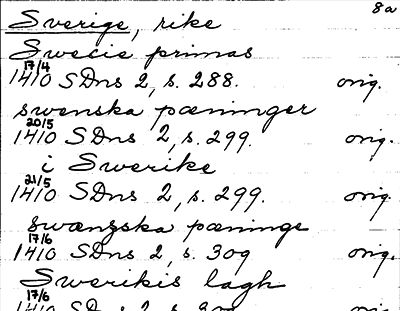 8a
Sverige, rike
Swecie primas
17/4
1410 SDns 2, s. 288. orig.
swenska pæninger
20/5
1410 SDns 2, s. 299. orig.
i Swerike
21/5
1410 SDns 2, s. 299. orig.
swængska pæninge
17/6
1410 SDns 2, s. 309 orig.
Swerikis lagh
17/6
1410 SDns 2, s. 309